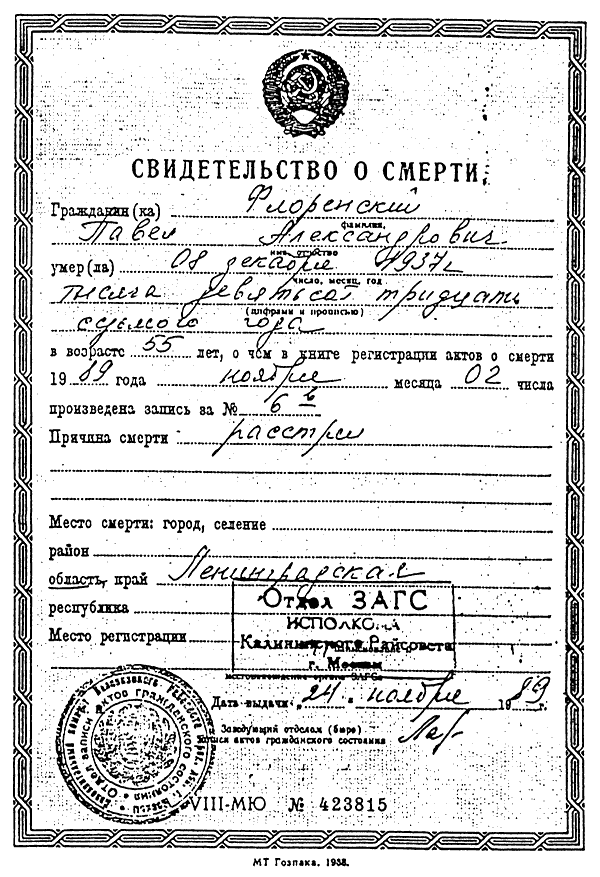 СВИДЕТЕЛЬСТВО О СМЕРТИ
Гражданин (ка) Флоренский
фамилия,
Павел Александрович
имя, отчество
умер(ла) 08 декабря 1937г
число, месяц, год
тысяча девятьсот тридцать
(цифрами и прописью)
седьмого года
в возрасте 55 лет, о чем в книге регистрации актов о смерти
19 89 года ноября месяца 02 числа
произведена запись за № 6
Причина смерти расстрел
Место смерти: город, селение
район
область, край Ленинградская
республика
Отдел ЗАГС
ИСПОЛКОМА
Место регистрации
Калининского Райсовета
г. Москвы
местонахождение органа ЗАГСа
Дата выдачи „24 " ноября 1989 г.
Заведующий отделом (бюро)
записи актов гражданского состояния
VIII-МЮ № 423815
МТ Гознака. 1988.